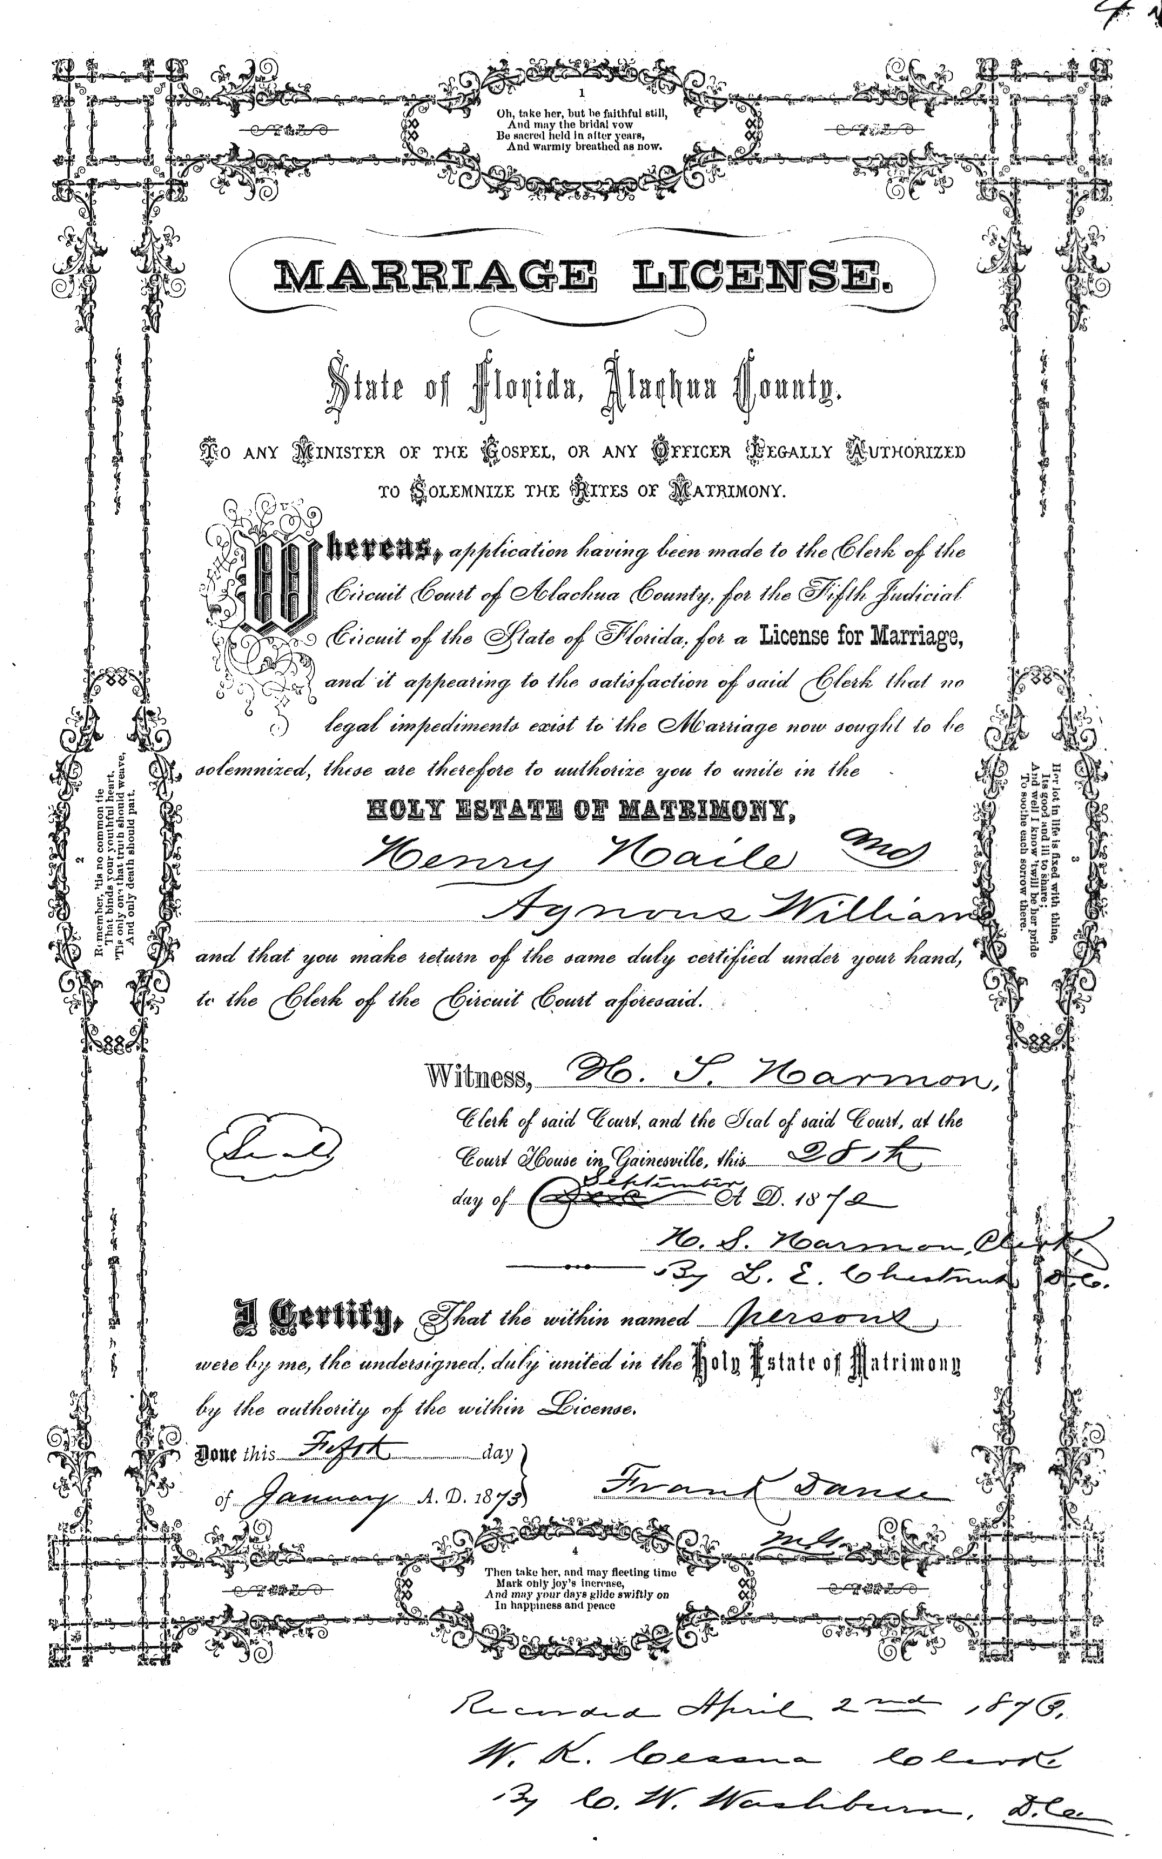 1
Oh, take her, but be faithful still,
And may the bridal vow
Be sacred held in after years,
And warmly breathed as now.
MARRIAGE LICENSE.
State of Florida, Alachua County.
TO ANY MINISTER OF THE GOSPEL, OR ANY OFFICER LEGALLY AUTHORIZED
TO SOLEMNIZE THE RITES OF MATRIMONY.
Whereas, application having been made to the Clerk of the
Circuit Court of Alachua County, for the Fifth Judicial
Circuit of the State of Florida, for a License for Marriage,
and it appearing to the satisfaction of said Clerk that no
legal impediments exist to the Marriage now sought to be
solemnized, these are therefore to authorize you to unite in the
HOLY ESTATE OF MATRIMONY,
Henry Haile and
Agnous Williams
and that you make return of the same duly certified under your hand,
to the Clerk of the Circuit Court aforesaid.
2
Remember, 'tis no common tie
That binds your youthful heart,
'Tis only one that truth should weave,
And only death should part.
3
Her lot in life is fixed with thine,
Its good and ill to share;
And well I know 'twill be her pride
To soothe each sorrow there.
Witness, H. S. Harmon,
Clerk of said Court, and the Seal of said Court, at the
Seal
Court House in Gainesville, this 28th
September
day of A D. 1872
H. S. Harmon, Clerk,
By L. E. Chestnut D.C.
I Certify, That the within named persons
were by me, the undersigned, duly united in the Holy Estate of Matrimony
by the authority of the within License.
Done this Fifth day
of January A. D. 1873
Frank Danse
4
Then take her, and may fleeting time
Mark only joy's increase,
And may your days glide swiftly on
In happiness and peace
Recorded April 2nd 1873.
W. K. Cessna Clerk
By C. W. Washburn, D.C.